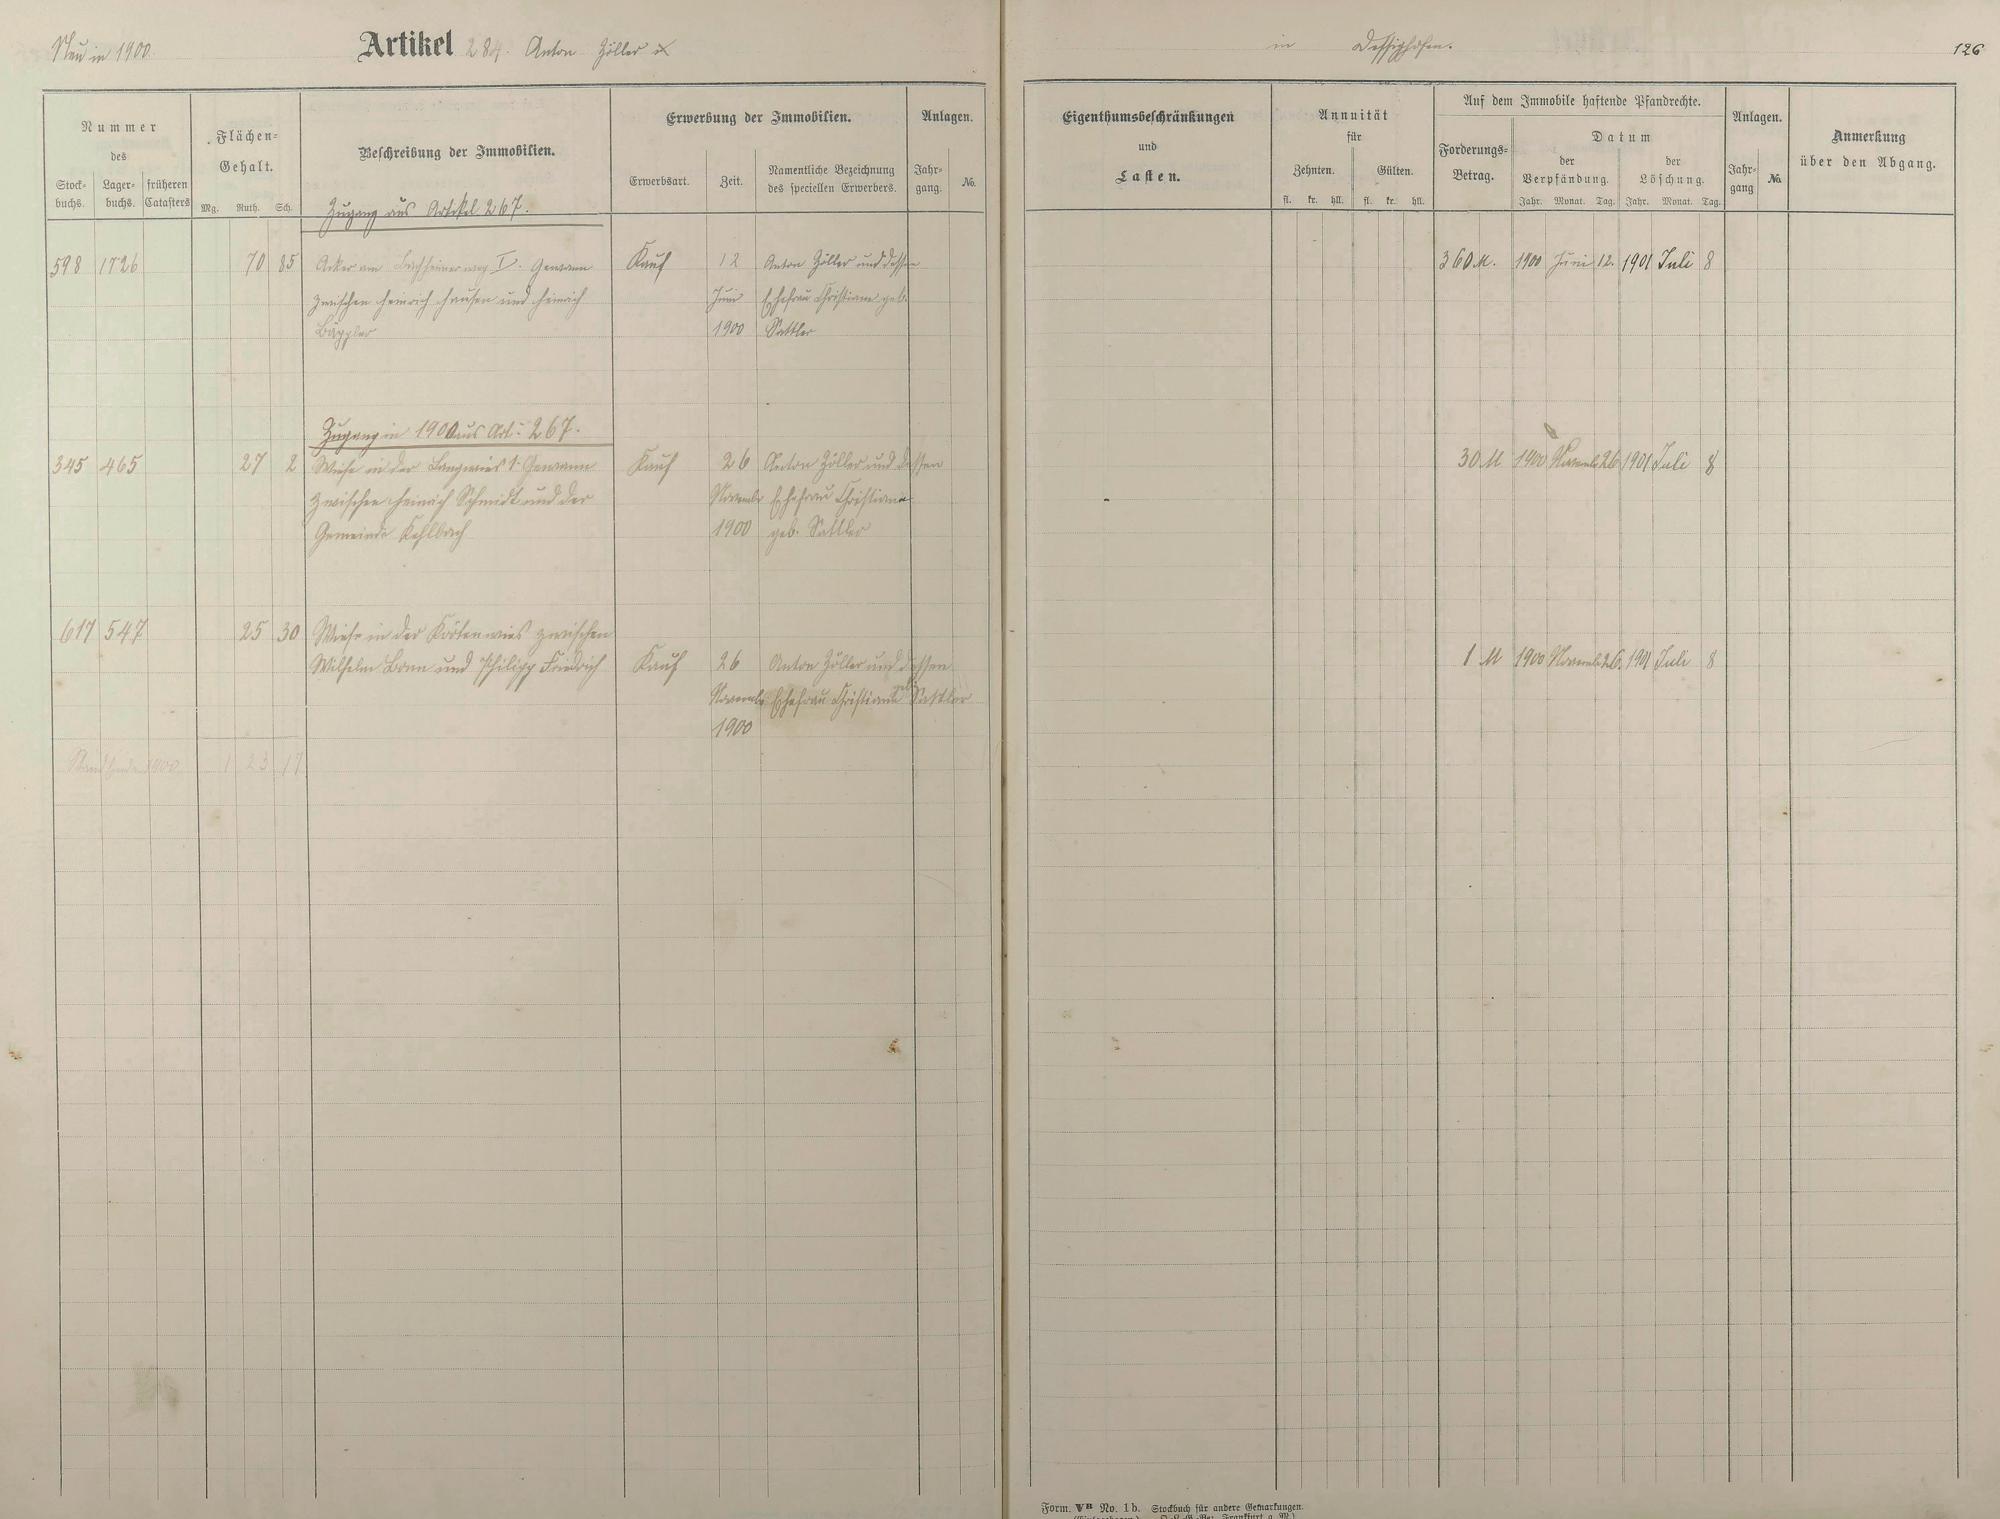 Neu in 1900.
Artikel 284. Anton Zöller
Nummer
des
Stock-
buchs.
Lager-
buchs.
früheren
Catasters
Flächen-
Gehalt.
Mg. Ruth. Sch.
Beschreibung der Immobilien.
Erwerbung der Immobilien.
Erwerbsart.
Zeit.
Namentliche Bezeichnung
des speciellen Erwerbers.
Anlagen.
Jahr-
gang.
No.
Zugang aus Artikel 267.
598 1726 70 85 Acker am I. Gewann Kauf 12 Anton Zöller und dessen
zwischen Heinrich Hausen und Heinrich Juni Ehefrau Christiane geb.
Bäppler 1900 Sattler
Zugang in 1900 aus Art. 267.
345 465 27 2 Wiese in der Langwies 1. Gewann Kauf 26 Anton Zöller und dessen
zwischen Heinrich Schmidt und der Novembr Ehefrau Christiane
Gemeinde Kehlbach 1900 geb. Sattler
617 547 25 30 Wiese in der zwischen
Wilhelm Bonn und Philipp Friedrich Kauf 26 Anton Zöller und dessen
Novembr Ehefrau Christiane geb. Sattler
1900
Stand Ende 1900 1 23 17
in Dessighofen.
126
Eigenthumsbeschränkungen
und
Lasten.
Annuität
für
Zehnten.
Gülten.
fl. kr. hll. fl. kr. hll.
Auf dem Immobile haftende Pfandrechte.
Forderungs-
Betrag.
Datum
der
Verpfändung.
der
Löschung.
Jahr. Monat. Tag. Jahr. Monat. Tag.
Anlagen.
Jahr-
gang
No.
Anmerkung
über den Abgang.
360 M. 1900 Juni 12. 1901 Juli 8
30 M 1900 Novemb 26 1901 Juli 8
1 M 1900 Novemb 26. 1901 Juli 8
Form. VB No. 1b. Stockbuch für andere Gemarkungen.